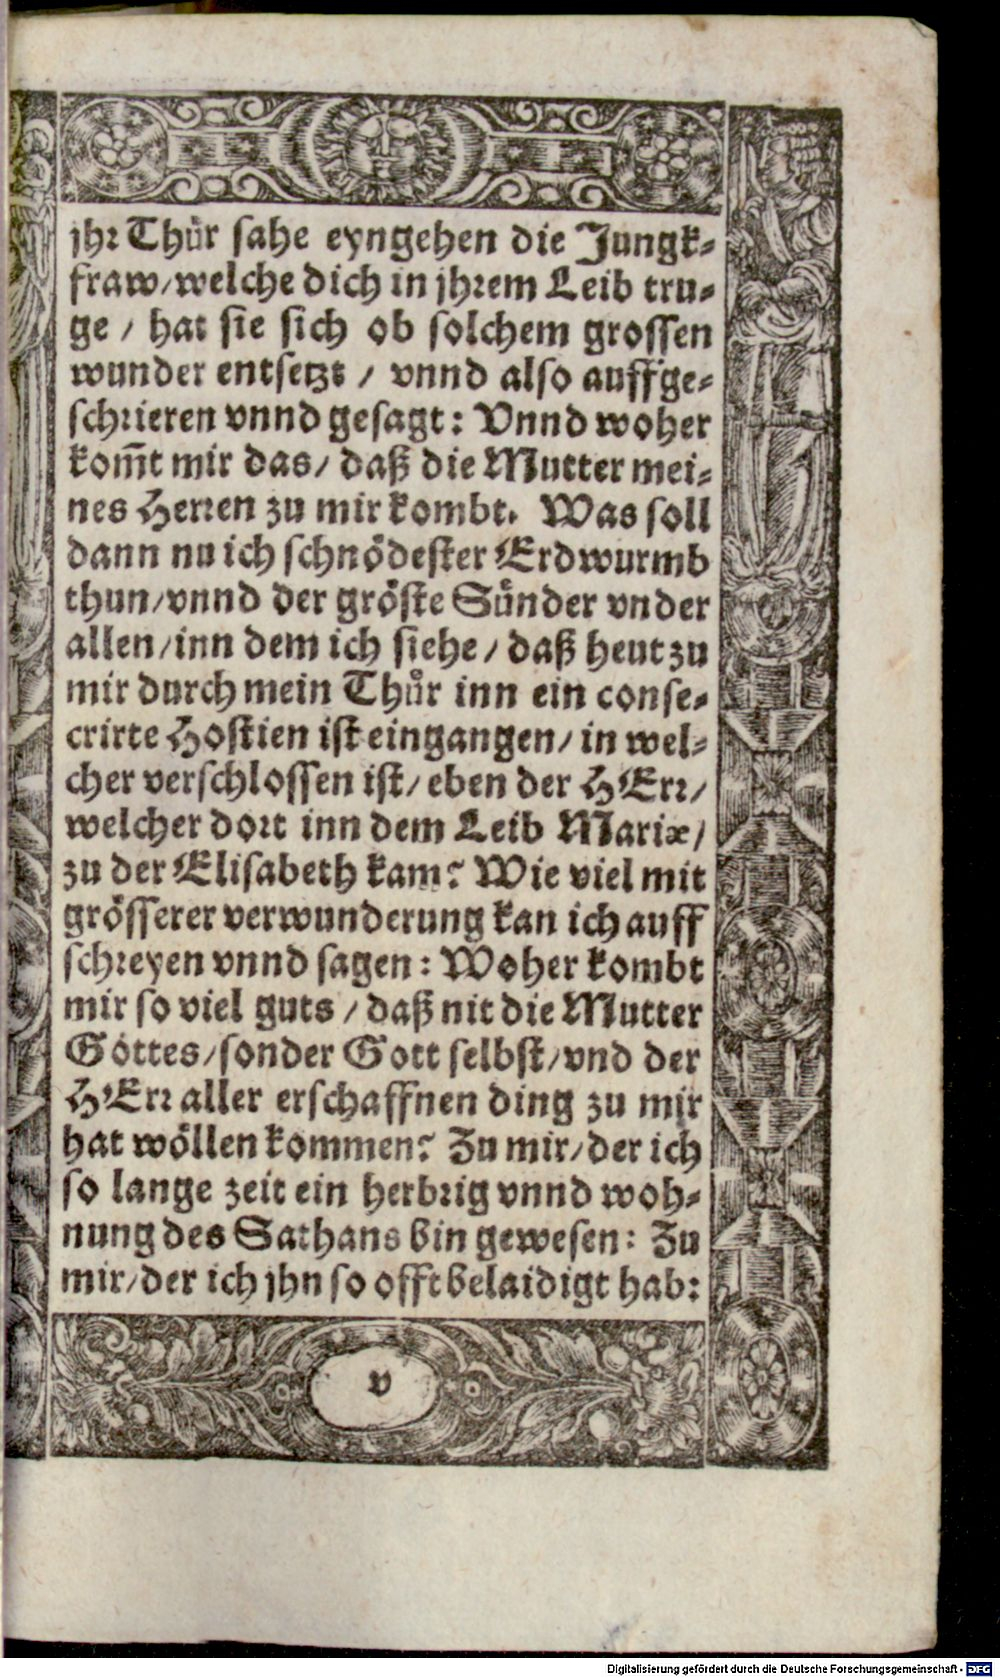 jhr Thür sahe eyngehen die Jungk-
fraw/welche dich in jhrem Leib tru-
ge / hat sie sich ob solchem grossen
wunder entsetzt / vnnd also auffge-
schrieren vnnd gesagt: Vnnd woher
kom̃t mir das/ daß die Mutter mei-
nes Herren zu mir kombt. Was soll
dann nu ich schnödester Erdwurmb
thun/vnnd der gröste Sünder vnder
allen/inn dem ich siehe/ daß heut zu
mir durch mein Thůr inn ein conse-
crirte Hostien ist eingangen/ in wel-
cher verschlossen ist/ eben der HErr/
welcher dort inn dem Leib Mariæ/
zu der Elisabeth kam? Wie viel mit
grösserer verwunderung kan ich auff
schreyen vnnd sagen: Woher kombt
mir so viel guts / daß nit die Mutter
Gottes/sonder Gott selbst/vnd der
HErr aller erschaffnen ding zu mir
hat wöllen kommen? Zu mir/der ich
so lange zeit ein herbrig vnnd woh-
nung des Sathans bin gewesen: Zu
mir/der ich jhn so offt belaidigt hab:
v
Digitalisierung gefördert durch die Deutsche Forschungsgemeinschaft - DFG